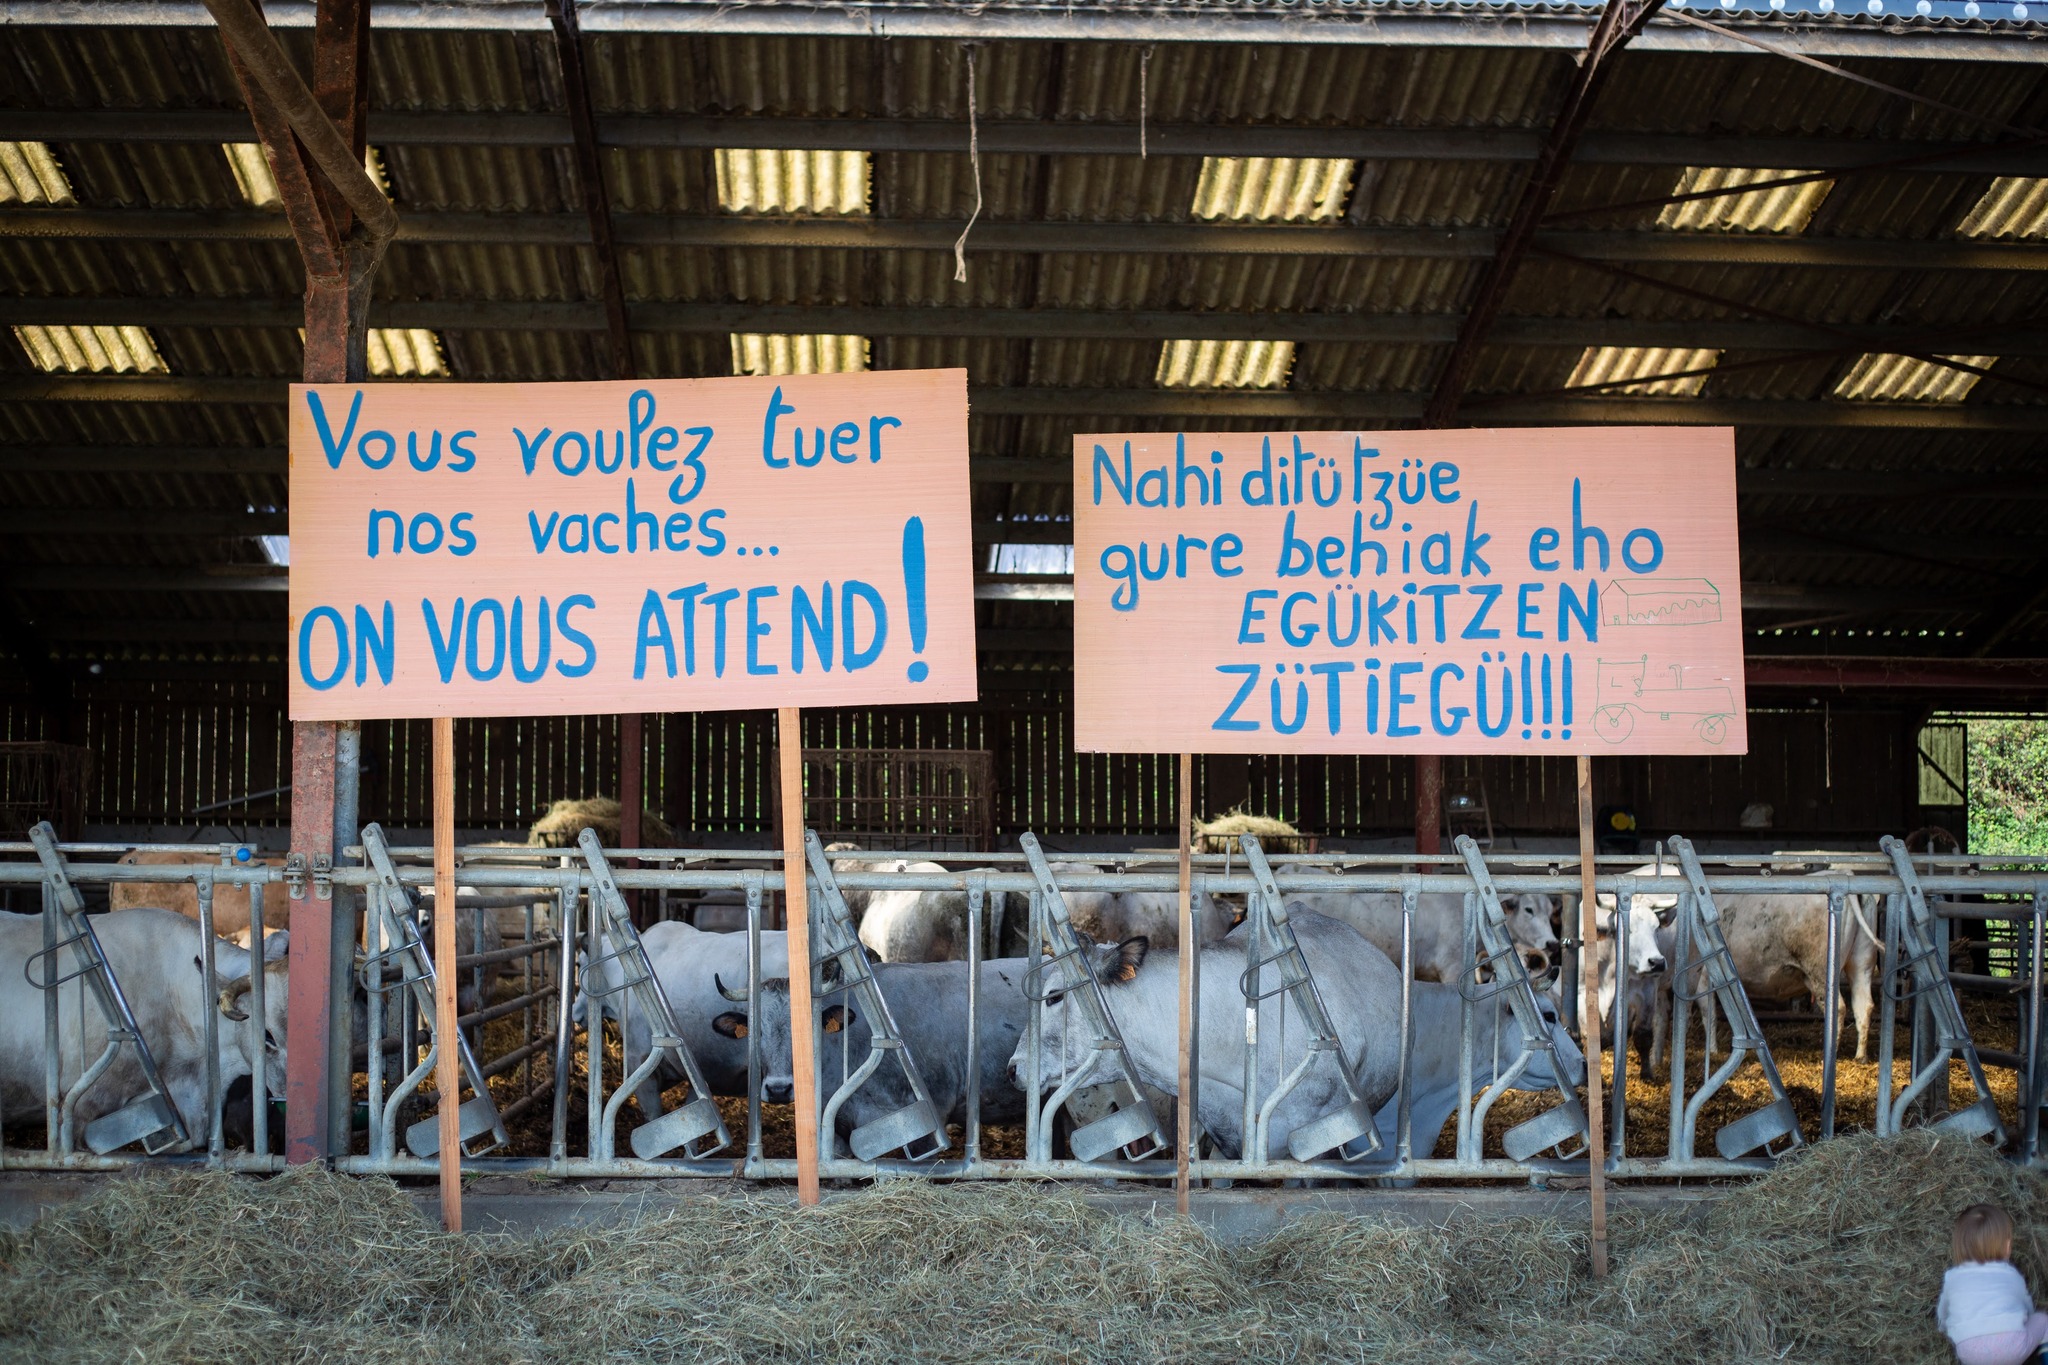 Vous voulez tuer
nos vaches...
ON VOUS ATTEND!
Nahi ditützüe
gure behiak eho
EGÜKiTZEN
ZÜTiEGÜ!!!